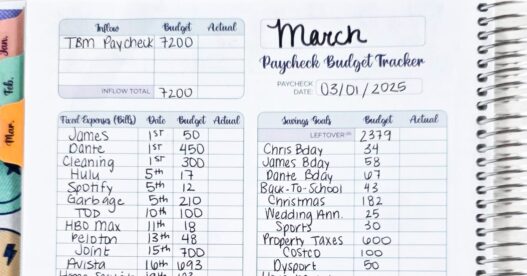 Jan.
Feb.
Mar.
Inflow Budget Actual
TBM Paycheck 7200
INFLOW TOTAL 7200
March
Paycheck Budget Tracker
PAYCHECK DATE: 03/01/2025
Fixed Expenses (Bills) Date Budget Actual
James 1st 50
Dante 1st 450
Cleaning 1st 300
Hulu 5th 17
Spotify 5th 12
Garbage 5th 210
TDD 10th 100
HBO Max 11th 18
Peloton 13th 48
Joint 15th 700
Avista 16th 693
Savings Goals Budget Actual
LEFTOVER 2379
Chris Bday 34
James Bday 58
Dante Bday 67
Back-To-School 43
Christmas 182
Wedding Ann. 25
Sports 30
Property Taxes 600
Costco 100
Dysport 50